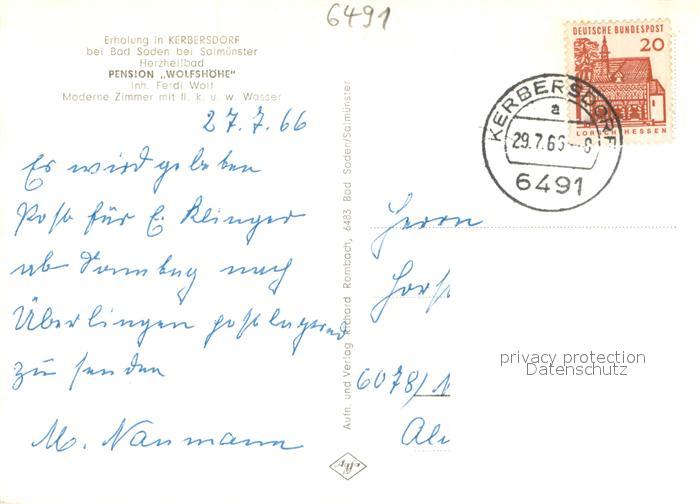 6491
Erholung in KERBERSDORF
bei Bad Soden bei Salmünster
Herzheilbad
PENSION „WOLFSHÖHE"
Inh. Ferdi Wolf
Moderne Zimmer mit fl. k. u. w. Wasser
27.7.66
Es wird gebeten
Post für E. Klinger
ab Samstag nach
Überlingen postlagernd
zu senden
M. Naumann
Aufn. und Verlag Richard Rombach, 6483 Bad Soden/Salmünster
DEUTSCHE BUNDESPOST
20
LORSCH HESSEN
KERBERSDORF
a
29.7.66
6491
Herrn
Hors
6078/ N
privacy protection
Datenschutz